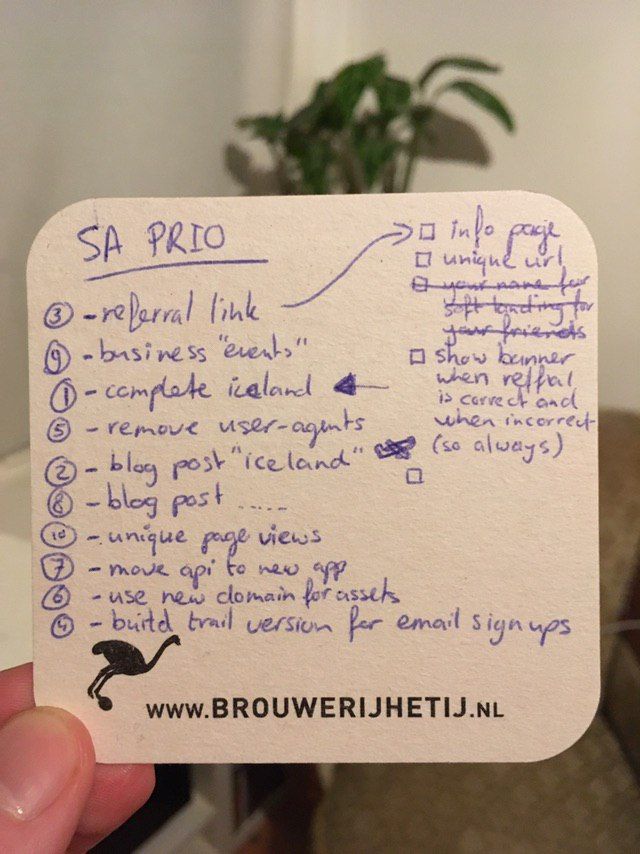 SA PRIO
③ - referral link
⑨ - business "events"
① - complete iceland
⑤ - remove user-agents
② - blog post "iceland"
⑧ - blog post .....
⑩ - unique page views
⑦ - move api to new app
⑥ - use new domain for assets
④ - build trail version for email sign ups
□ info page
□ unique url
□ your name for
soft landing for
your friends
□ show banner
when reffral
is correct and
when incorrect
(so always)
□
WWW.BROUWERIJHETIJ.NL